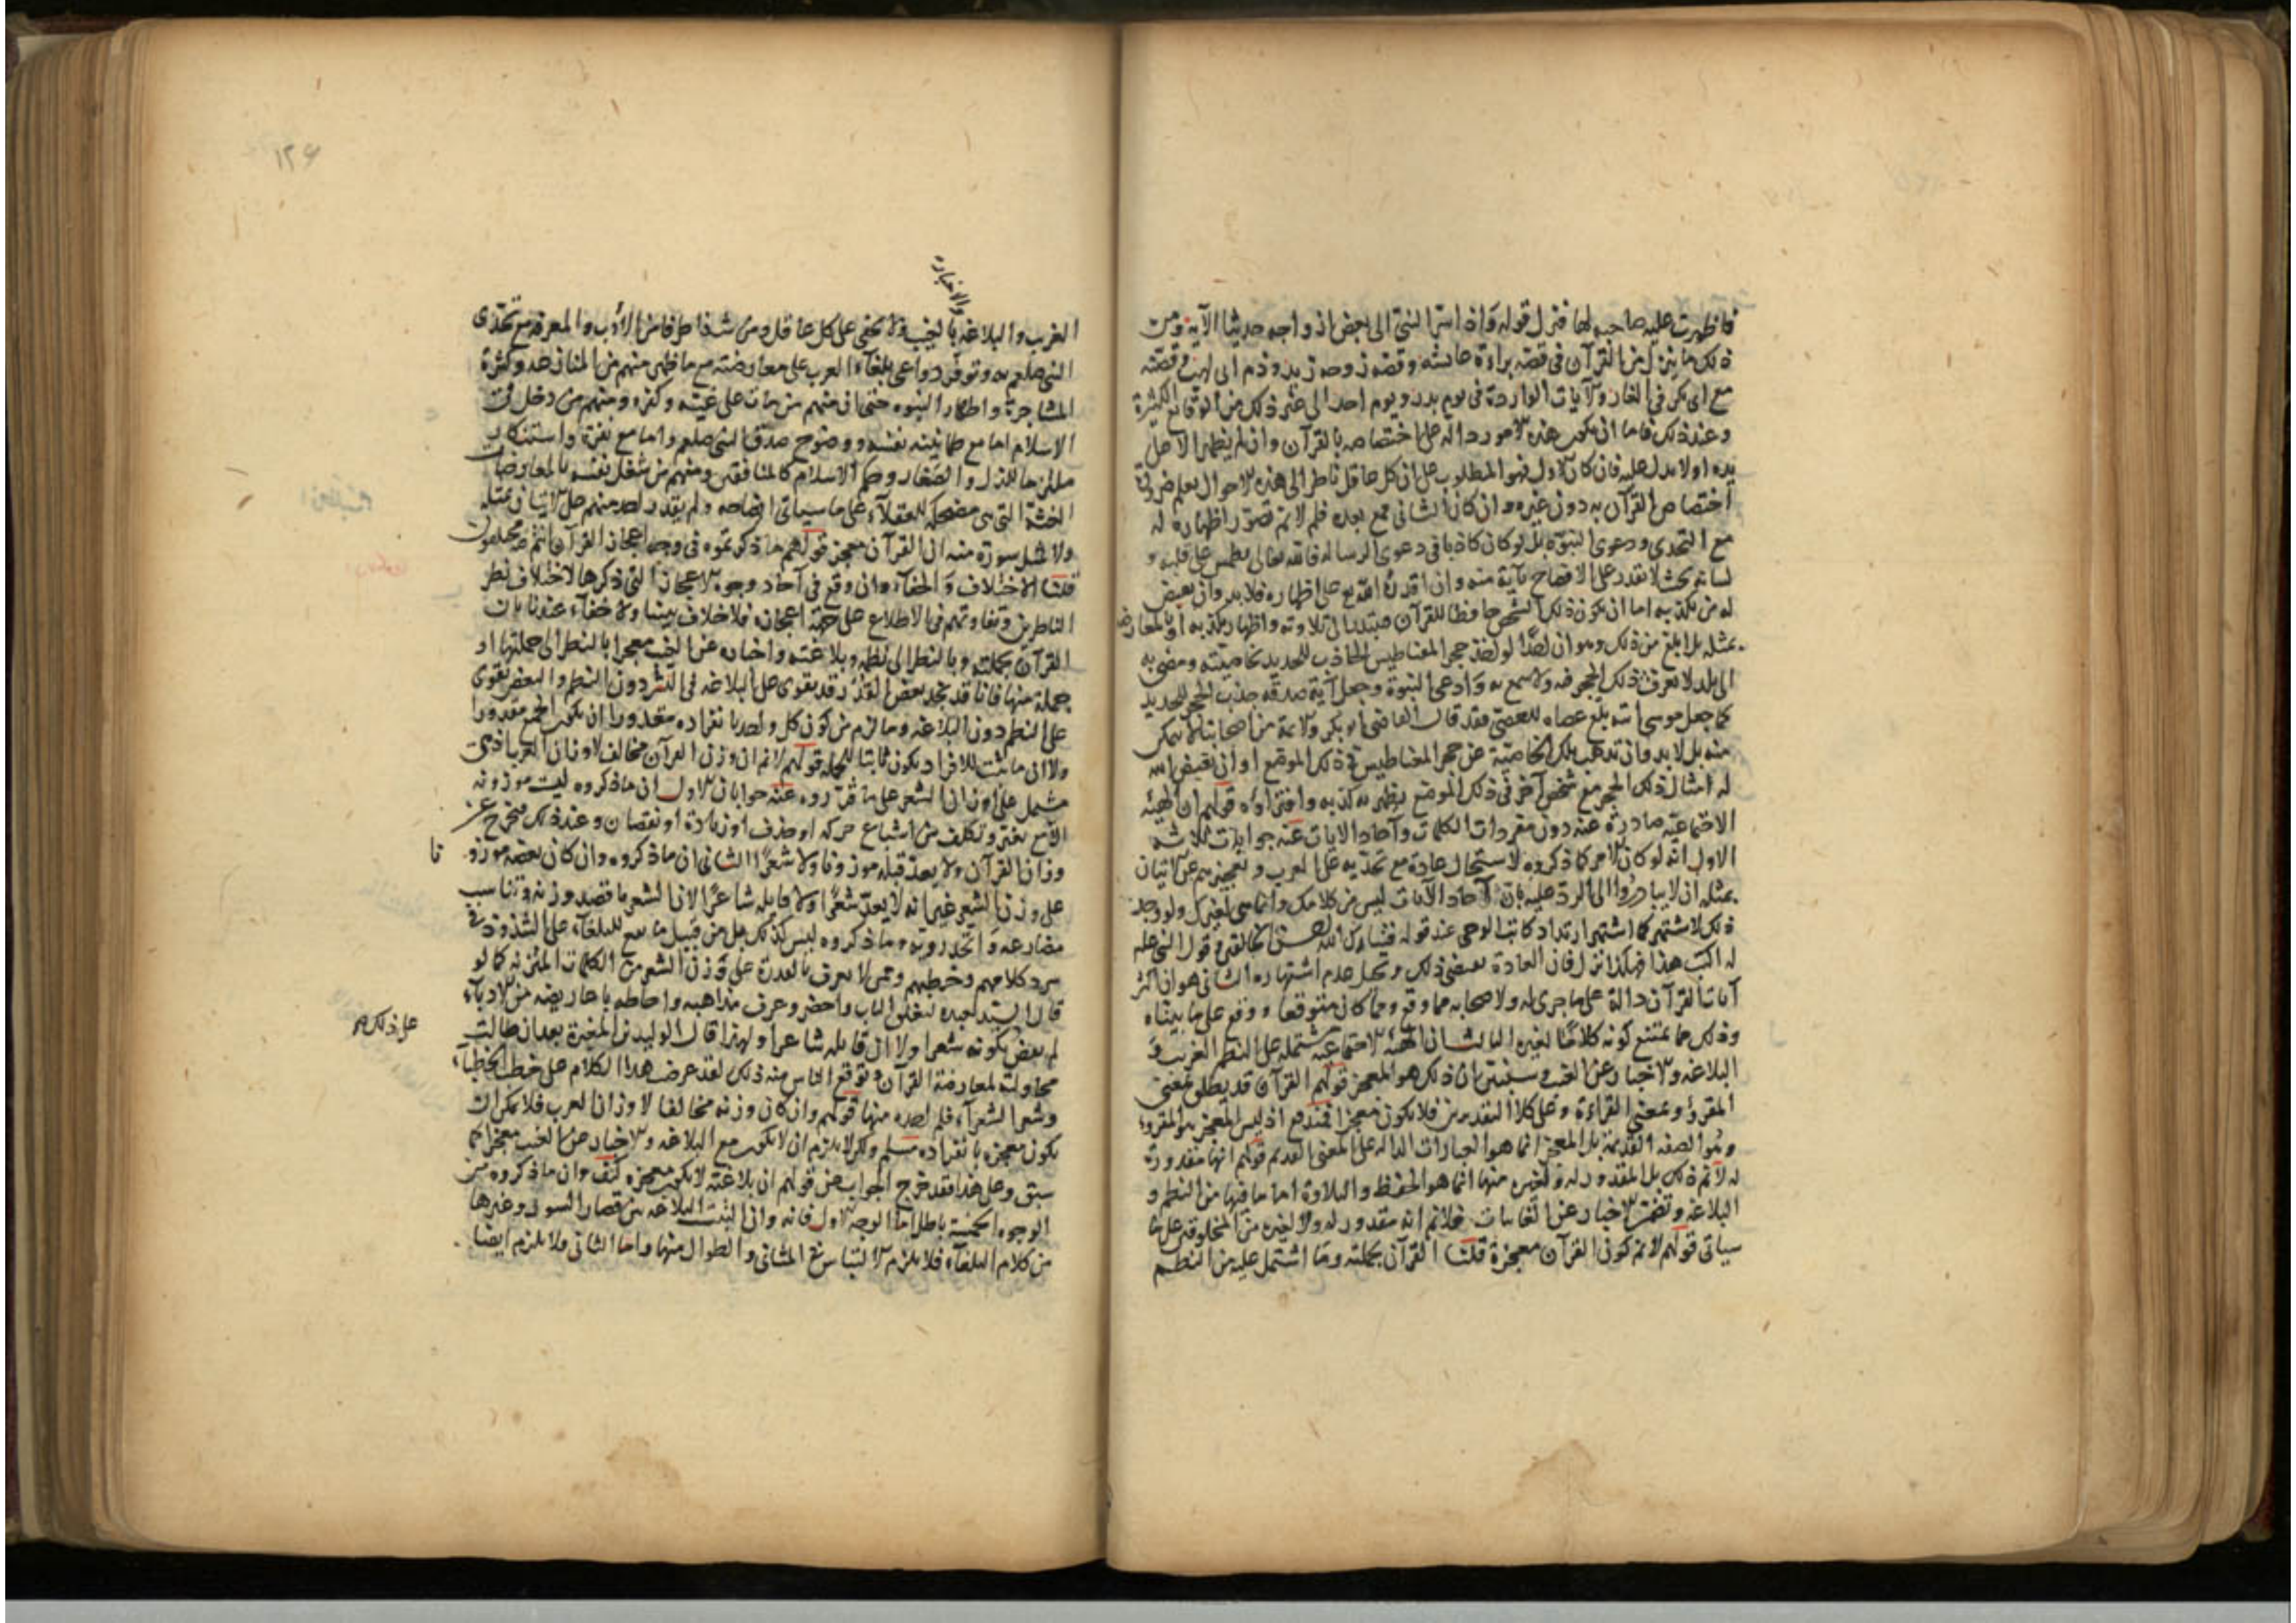 فاظهرت عليه صاحبه لها فنزل قوله واذ اسر النبي الى بعض ازواجه حديثا الآية ومن
ذلك ما نزل من القرآن في قصة براءة عائشة وقصة زوجة زيد وذم ابي لهب وقصته
مع ابي بكر في الغار والآيات الواردة في يوم بدر ويوم احد الى غير ذلك من الوقائع الكثيرة
وعند ذلك فاما ان تكون هذه الامور دالة على اختصاصه بالقرآن وانه لم يظهر الا على
يده اولا يدل عليه فان كان الاول فهو المطلوب على ان كل عاقل ناظر الى هذه الاحوال يعلم ضرورة
اختصاص القرآن به دون غيره وان كان الثاني مع بعده فلم لا نم تصور اظهاره له
مع التحدي ودعوى النبوة بل لو كان كاذبا في دعوى الرسالة فالله تعالى يطمس على قلبه و
لسانه بحيث لا يقدر على الافصاح بآية منه وان اقدره الله تع على اظهاره فلا بد وان يقيض
له من يكذبه اما ان يكون ذلك الشخص حافظا للقرآن مبتدرا الى تلاوته واظهار كذبه او بالمعارضة
بمثله بل ابلغ من ذلك وهو ان احدا لو اخذ حجر المغناطيس الجاذب للحديد بخاصيته ومضى به
الى بلد لا يعرف ذلك الحجر فيه ولا سمع به وادعى النبوة وجعل آية صدقه جذب الحجر للحديد
كما جعل موسى آيته بلع عصاه للعصي فقد قال القاضي ابو بكر والائمة من اصحابنا لا يمكن
منه بل لا بد وان تذهب تلك الخاصية عن حجر المغناطيس في ذلك الموضع او ان يقيض الله
له امثال ذلك الحجر مع شخص آخر في ذلك الموضع يظهر به كذبه وافتراؤه قولهم ان الهيئة
الاجتماعية صادرة عنه دون مفردات الكلمات وآحاد الآيات عنه جوابات ثلاثة
الاول انه لو كان الامر كما ذكروه لاستحال عادة مع تحديه على العرب وتعجيزهم عن الاتيان
بمثله ان لا يبادروا الى الرد عليه بان آحاد الآيات ليس من كلامك وانما هي لغيرك ولو وجد
ذلك لاشتهر كما اشتهر ارتداد كاتب الوحي عند قوله فتبارك الله احسن الخالقين وقول النبي عليه
له اكتب هذا فهكذا نزل فان العادة تقتضي ذلك وتحيل عدم اشتهاره الثاني هو ان اكثر
آيات القرآن دالة على ما جرى له ولاصحابه مما وقع ومما كان متوقعا ووقع على ما بيناه
وذلك مما يمتنع كونه كلاما لغيره الثالث ان الهيئة الاجتماعية مشتملة على النظم الغريب و
البلاغة والاخبار عن الغيب وسنبين ان ذلك هو المعجز قولهم القرآن قد يطلق بمعنى
المقروء وبمعنى القراءة وعلى كلا التقديرين فلا يكون معجزا فمندفع اذ ليس المعجز هو المقروء
وهو الصفة القديمة بل المعجز انما هو العبارات الدالة على المعنى القديم قولهم انها مقدورة
له لا نم ذلك بل المقدور له ولغيره منها انما هو الحفظ والتلاوة اما ما فيها من النظم و
البلاغة وتضمن الاخبار عن الغائبات فلا نم انه مقدور له ولا لغيره من المخلوقين على ما
سياتي قولهم لا نم كون القرآن معجزة قلنا القرآن بجملته وما اشتمل عليه من النظم
١٢٦
والاخبار
الغريب والبلاغة بالغيب فلا يخفى على كل عاقل ومن شذا طرفا من الادب والمعرفة مع تحدي
النبي صلعم به وتوفر دواعي بلغاء العرب على معارضته مع ما ظهر منهم من المنازعة وكثرة
المشاجرة واظهار النبوه حتى ان منهم من مات على غيه وكفره ومنهم من دخل في
الاسلام اما مع طمانينة نفسه ووضوح صدق النبي صلعم واما مع نفرة واستنكاف
ملتزما للذل والصغار وحكم الاسلام كالمنافقين ومنهم من شغل نفسه بالمعارضات
الغثة التي هي مضحكة للعقلاء على ما سياتي ايضاحه ولم يقدر احد منهم على الاتيان بمثله
ولا بمثل سورة منه ان القرآن معجز قولهم ما ذكرتموه في وجه اعجاز القرآن انتم فيه مختلفون
قلنا الاختلاف والخفاء وان وقع في آحاد وجوه الاعجاز التي ذكرها لاختلاف نظر
الناظرين وتفاوتهم في الاطلاع على جهة اعجازه فلا خلاف بيننا ولا خفاء عندنا بان
القرآن بجملته وبالنظر الى نظمه وبلاغته واخباره عن الغيب معجز ا بالنظر الى جملتها او
جملة منها فانا قد نجد بعض الفُ رد قد يقوى على البلاغة في النثر دون النظم والبعض يقوى
على النظم دون البلاغة وما لزم من كون كل واحد بانفراده مقدورا ان يكون الجمع مقدورا
ولا ان ما يثبت للافراد يكون ثابتا للجملة قولهم لا نم ان وزن القرآن مخالف لاوزان العرب اذ هي
مشتمل على اوزان الشعر على ما قرروه عنه جوابان الاول ان ما ذكروه ليست موزونة
الا مع تغير وتكلف من اشباع حركة او حذف او زيادة او نقصان وعند ذلك فيخرج عن
وزان القرآن ولا يعد قبله موزونا ولا شعرا الثاني ان ما ذكروه وان كان بعضه موزو
نا
على وزن الشعر غير انه لا يعد شعرا ولا قايله شاعرا لان الشعر ما قصد وزنه وتناسب
مضارعه واتحد رويه وما ذكروه ليس كذلك بل من قبيل ما يقع للبلغاء على الشذوذ في
سرد كلامهم وخطبهم وممن لا يعرف بالقدرة على وزن الشعر من الكلمات المتزنة كما لو
قال السيد لعبده لتغلق الباب واحضر وعرف مذاهبه واحاطه باعاريضه من الادباء
على ذلك صح
لم يقض بكونه شعرا ولا ان قايله شاعرا ولهذا قال الوليد بن المغيرة بعد ان طالت
محاولته لمعارضة القرآن وتوقع الناس منه ذلك لقد عرضت هذا الكلام على خطب الخطباء
وشعر الشعراء فلم اجده منها قولهم وان كان وزنه مخالفا لاوزان العرب فلا يمكن ان
يكون معجزه بانفراده مسلم ولكن لا يلزم ان لا يكون مع البلاغة والاخبار عن الغيب معجزا كما
سبق وعلى هذا فقد خرج الجواب عن قولهم ان بلاغته لا يكون معجزه كيف وان ما ذكروه من
الوجوه الخمسة باطل اما الوجه الاول فانه وان التبست البلاغة من قصار السور وغيرها
من كلام البلغاء فلا يلزم الالتباس في المثاني والطوال منها واما الثاني فلا يلزم ايضا